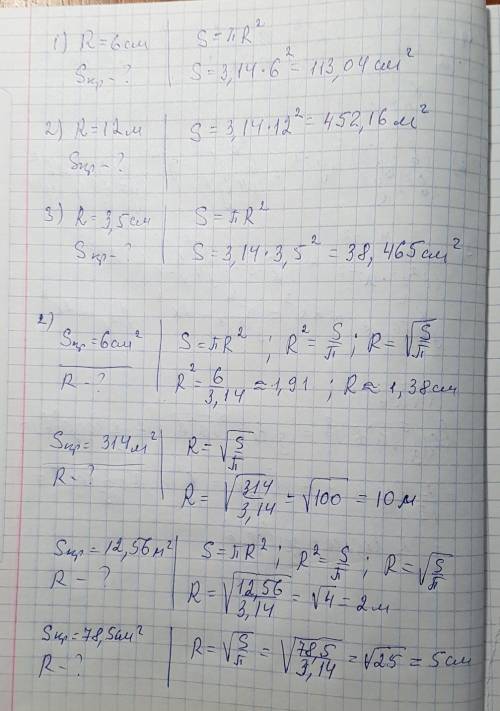 1) R = 6 см | S = πR²
Sкр - ? | S = 3,14 · 6² = 113,04 см²
2) R = 12 м | S = 3,14 · 12² = 452,16 м²
Sкр - ?
3) R = 3,5 см | S = πR²
Sкр - ? | S = 3,14 · 3,5² = 38,465 см²
2)
Sкр = 6 см² | S = πR² ; R² = S/π ; R = √(S/π)
R - ? | R² = 6/3,14 ≈ 1,91 ; R ≈ 1,38 см
Sкр = 314 м² | R = √(S/π)
R - ? | R = √(314/3,14) = √100 = 10 м
Sкр = 12,56 м² | S = πR² ; R² = S/π ; R = √(S/π)
R - ? | R = √(12,56/3,14) = √4 = 2 м
Sкр = 78,5 см² | R = √(S/π) = √(78,5/3,14) = √25 = 5 см
R - ?